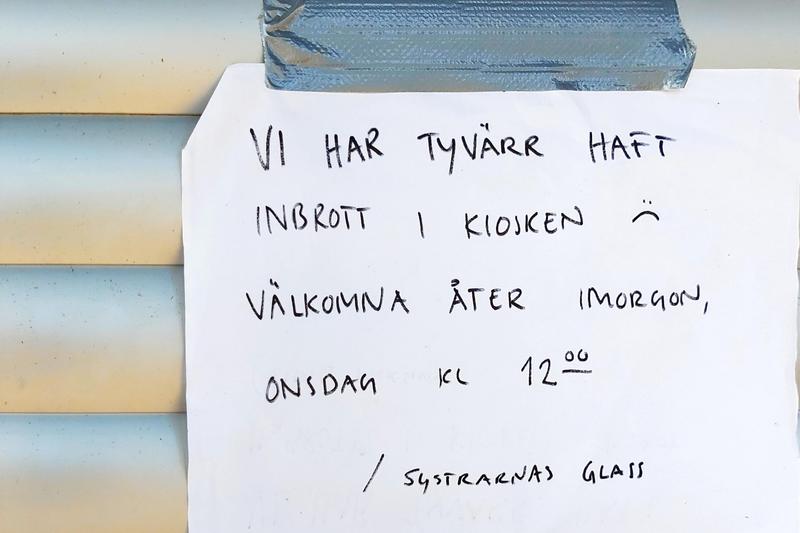 VI HAR TYVÄRR HAFT
INBROTT I KIOSKEN ☹
VÄLKOMNA ÅTER IMORGON,
ONSDAG KL 12⁰⁰
/ SYSTRARNAS GLASS